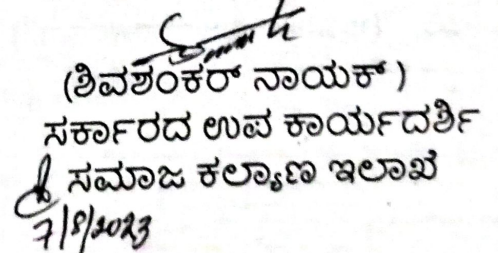 (ಶಿವಶಂಕರ್ ನಾಯಕ್)
ಸರ್ಕಾರದ ಉಪ ಕಾರ್ಯದರ್ಶಿ
ಸಮಾಜ ಕಲ್ಯಾಣ ಇಲಾಖೆ
7/8/2023